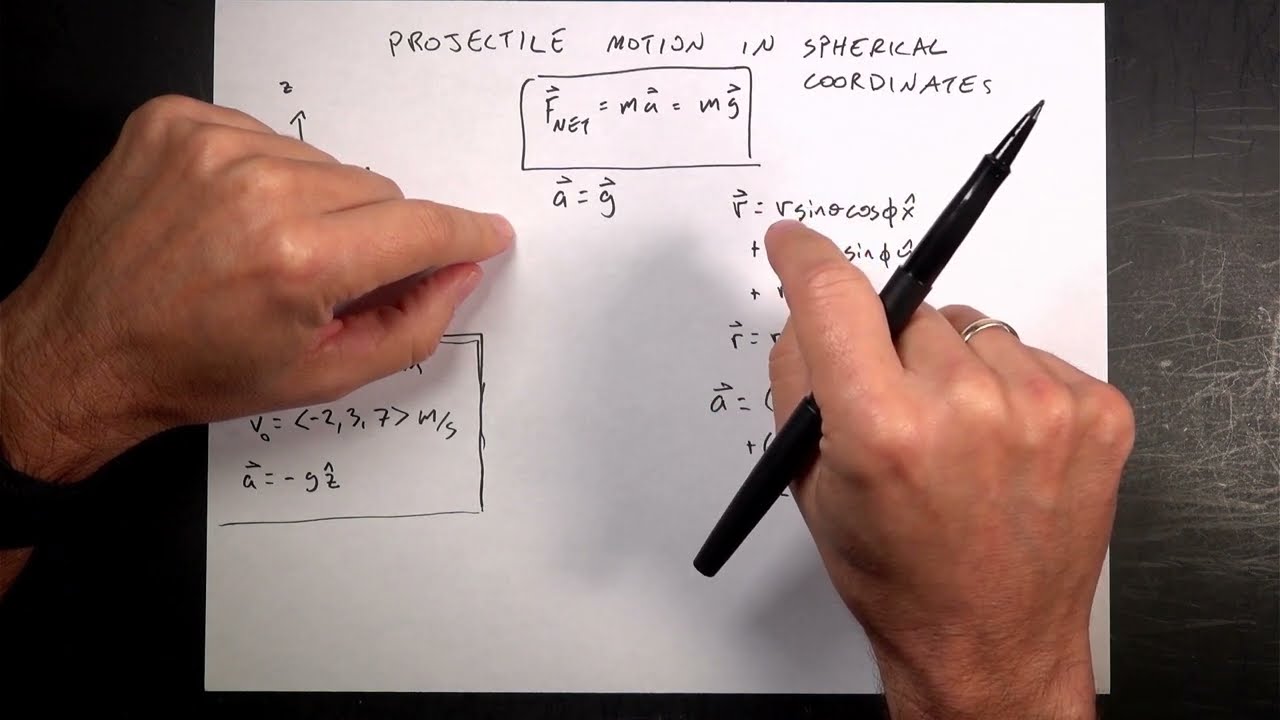 PROJECTILE MOTION IN SPHERICAL
COORDINATES
z
F⃗NET = ma⃗ = mg⃗
a⃗ = g⃗
r⃗ = rsinθcosϕx̂
+ sinϕŷ
+
r⃗ =
a⃗ = (
+(
v₀ = <-2, 3, 7> m/s
a⃗ = - gẑ